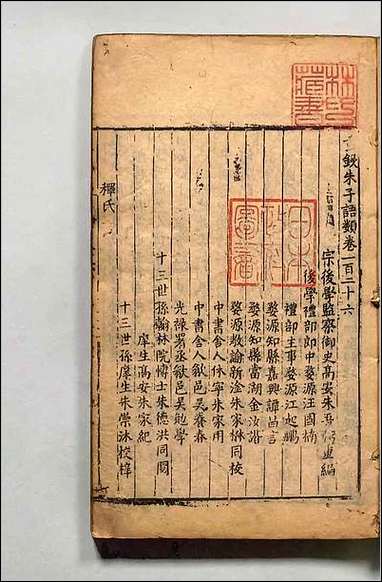 鋟朱子語類卷一百二十六
宗後學監察御史高安朱吾弼重編
後學禮部郎中婺源汪國楠
禮部主事婺源江起鵬
婺源知縣嘉興譚昌言
婺源知縣當湖金汝諧
婺源教諭新淦朱家楙同校
中書舍人休寧朱家用
中書舍人歙邑吳養春
光祿署丞歙邑吳勉學
十三世孫翰林院博士朱德洪同閱
庠生高安朱家紀
十三世孫庠生朱崇沐校梓
釋氏
林氏藏書
日本政府圖書